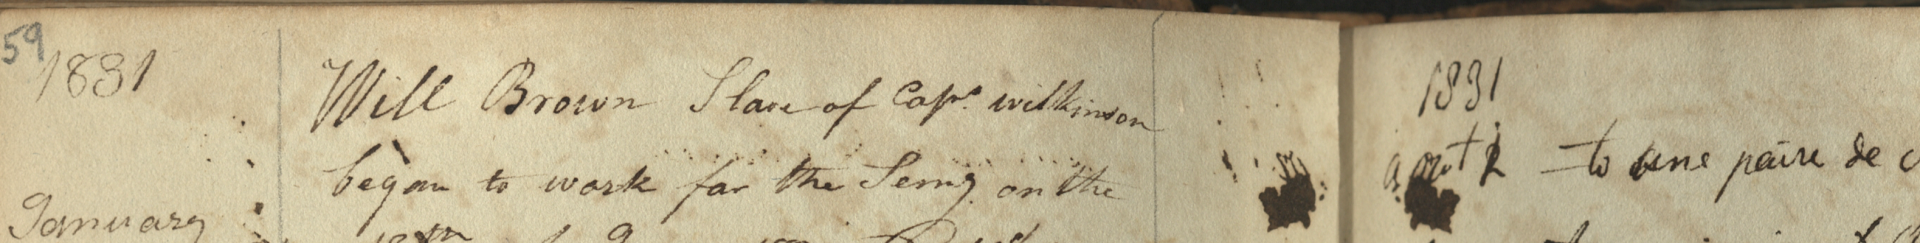 59
1831
Will Brown Slave of Capt. wilkinson
began to work for the Semy. on the
January
1831
aout 2 to une paire de